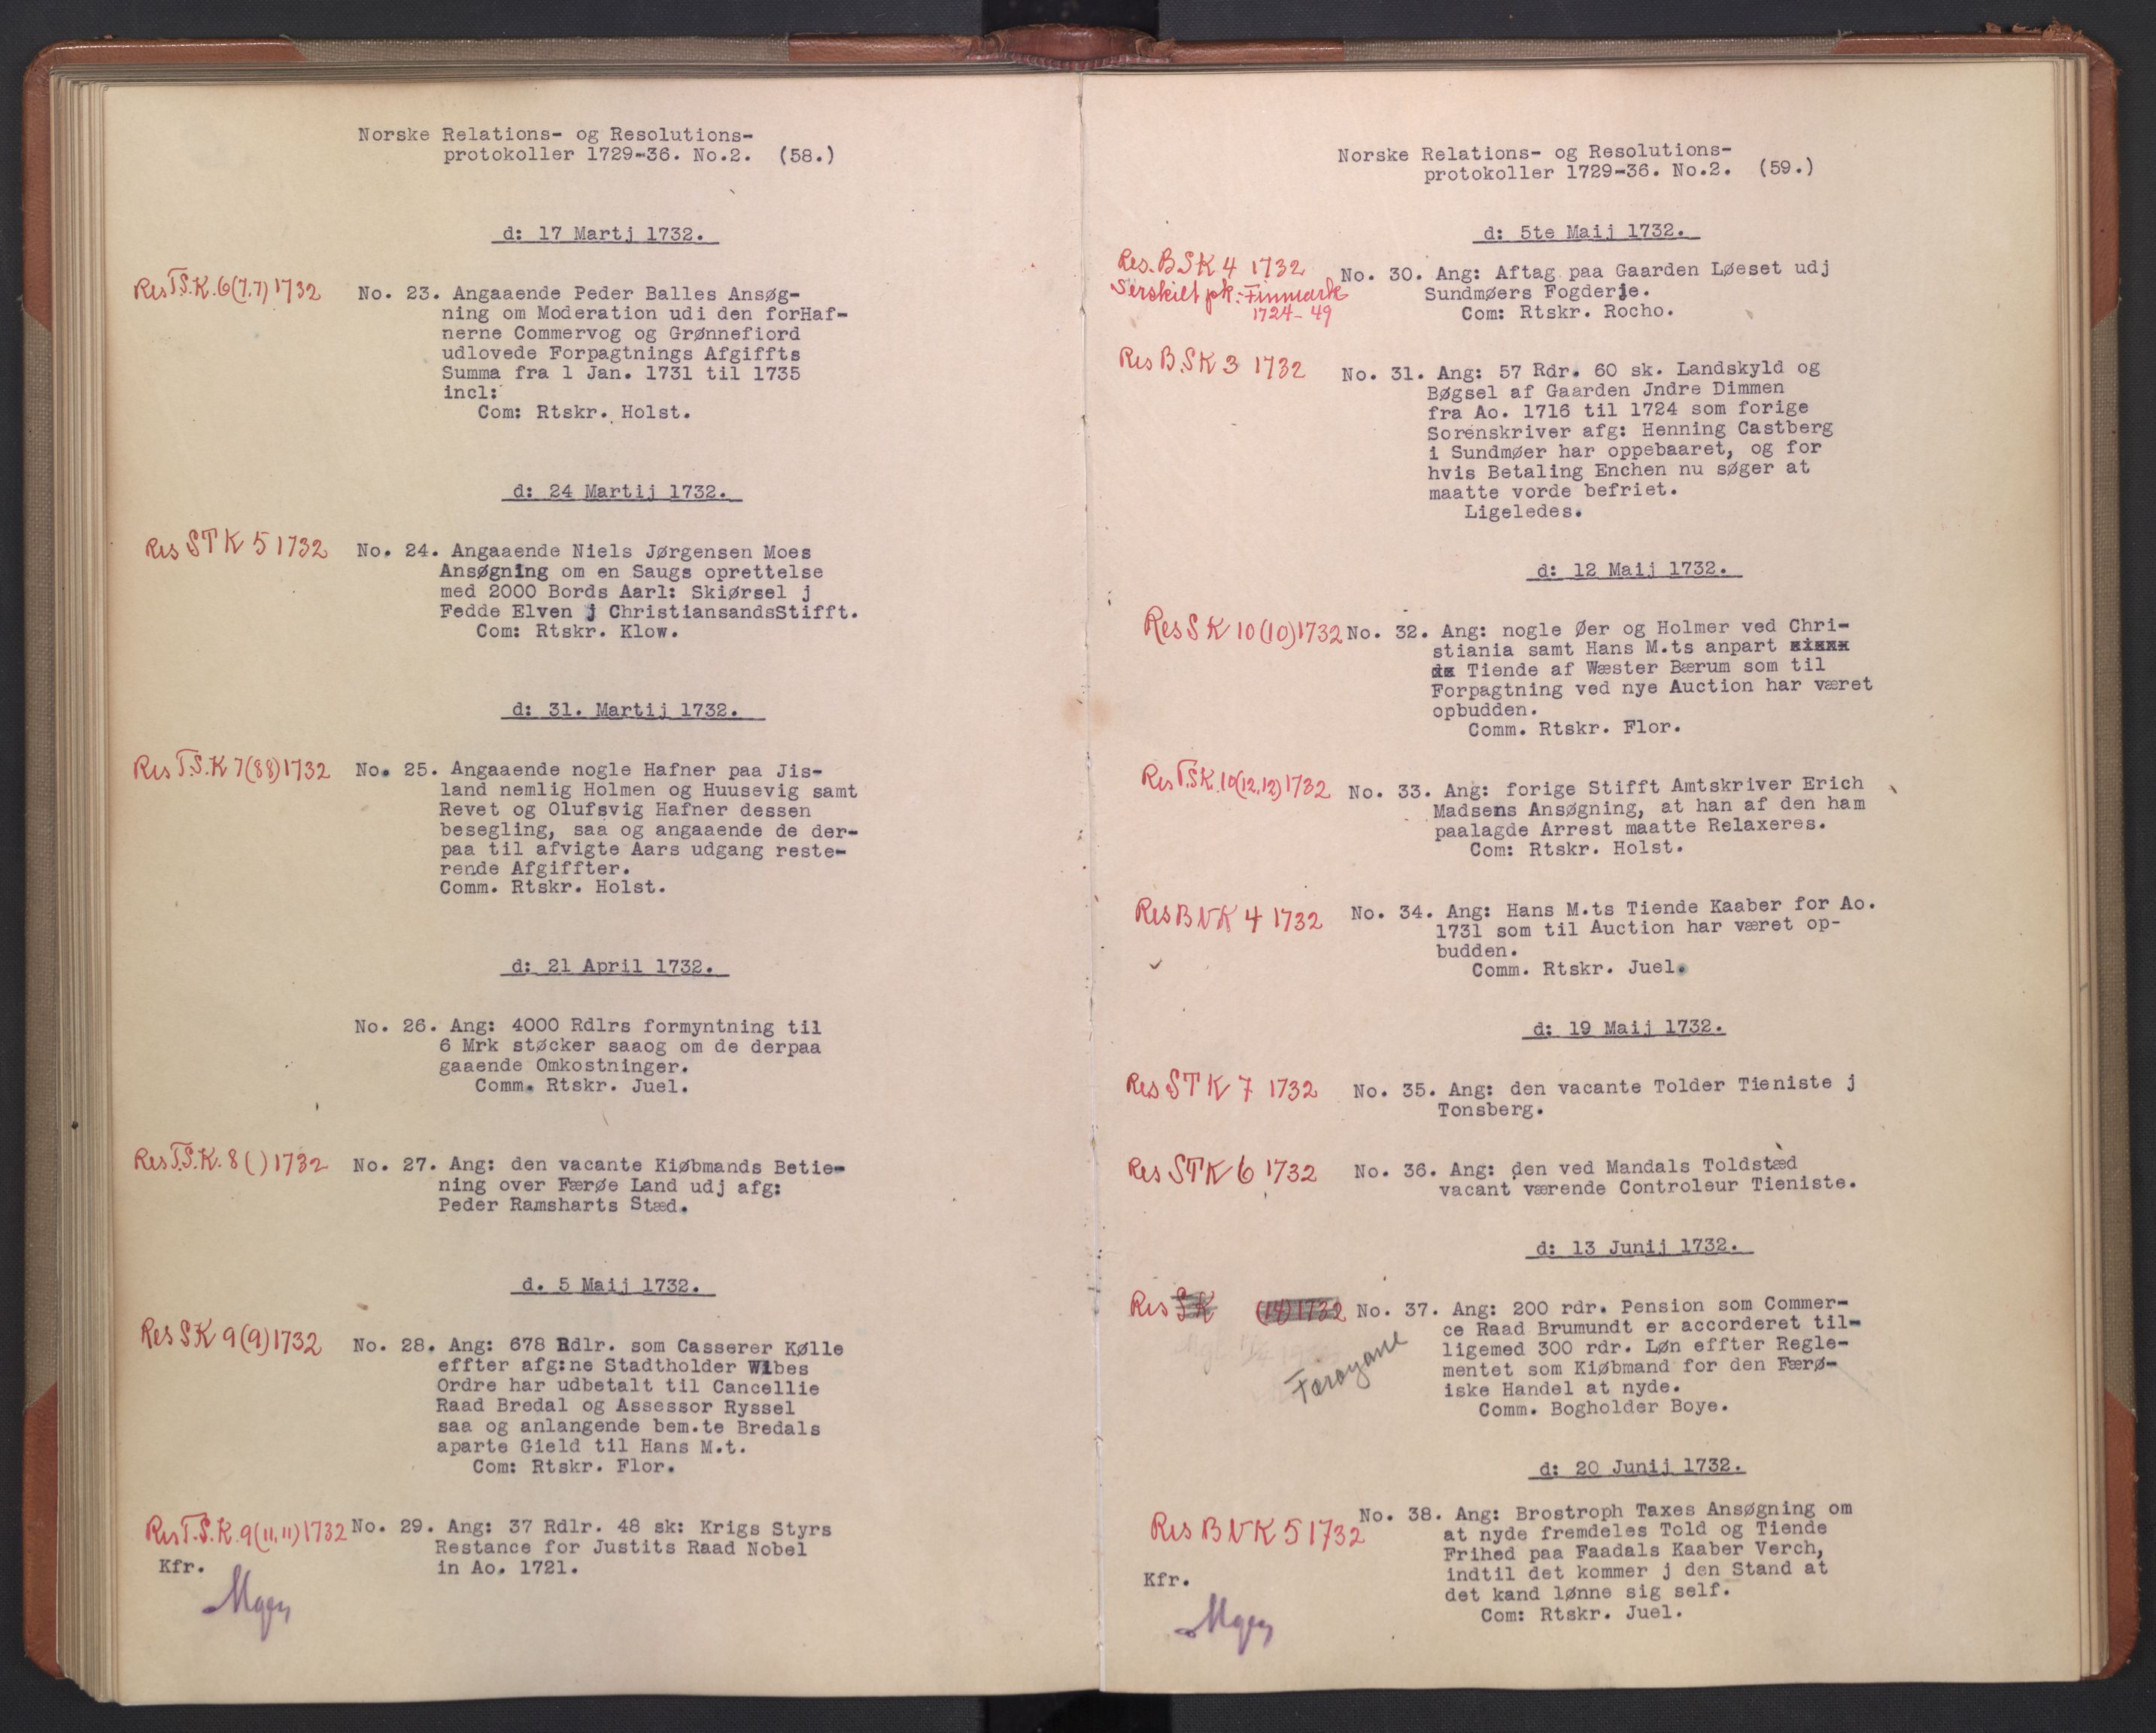 Norske Relations- og Resolutions-
protokoller 1729-36. No.2. (58.)
d: 17 Martj 1732.
Res T.S.K. 6(7.7) 1732
No. 23. Angaaende Peder Balles Ansøg-
ning om Moderation udi den forHaf-
nerne Commervog og Grønnefiord
udlovede Forpagtnings Afgiffts
Summa fra 1 Jan. 1731 til 1735
incl:
Com: Rtskr. Holst.
d: 24 Martij 1732.
Res STK 5 1732
No. 24. Angaaende Niels Jørgensen Moes
Ansøgning om en Saugs oprettelse
med 2000 Bords Aarl: Skiørsel j
Fedde Elven j ChristiansandsStifft.
Com: Rtskr. Klow.
d: 31. Martij 1732.
Res T.S.K 7(88) 1732
No. 25. Angaaende nogle Hafner paa Jis-
land nemlig Holmen og Huusevig samt
Revet og Olufsvig Hafner dessen
besegling, saa og angaaende de der-
paa til afvigte Aars udgang reste-
rende Afgiffter.
Comm. Rtskr. Holst.
d: 21 April 1732.
No. 26. Ang: 4000 Rdlrs formyntning til
6 Mrk støcker saaog om de derpaa
gaaende Omkostninger.
Comm. Rtskr. Juel.
Res T.S.K. 8 ( ) 1732
No. 27. Ang: den vacante Kiøbmands Betie-
ning over Færøe Land udj afg:
Peder Ramsharts Stæd.
d. 5 Maij 1732.
Res SK 9(9) 1732
No. 28. Ang: 678 Rdlr. som Casserer Kølle
effter afg:ne Stadtholder Wibes
Ordre har udbetalt til Cancellie
Raad Bredal og Assessor Ryssel
saa og anlangende bem.te Bredals
aparte Gield til Hans M.t.
Com: Rtskr. Flor.
Res T.S.K. 9(11,11) 1732
No. 29. Ang: 37 Rdlr. 48 sk: Krigs Styrs
Restance for Justits Raad Nobel
in Ao. 1721.
Kfr.
Norske Relations- og Resolutions-
protokoller 1729-36. No.2. (59.)
d: 5te Maij 1732.
Res. B SK 4 1732
Serskilt pk: Finmark
1724-49
No. 30. Ang: Aftag paa Gaarden Løeset udj
Sundmøers Fogderje.
Com: Rtskr. Rocho.
Res B.SK 3 1732
No. 31. Ang: 57 Rdr. 60 sk. Landskyld og
Bøgsel af Gaarden Jndre Dimmen
fra Ao. 1716 til 1724 som forige
Sorenskriver afg: Henning Castberg
i Sundmøer har oppebaaret, og for
hvis Betaling Enchen nu søger at
maatte vorde befriet.
Ligeledes.
d: 12 Maij 1732.
Res SK 10 (10) 1732
No. 32. Ang: nogle Øer og Holmer ved Chri-
stiania samt Hans M.ts anpart
Tiende af Wæster Bærum som til
Forpagtning ved nye Auction har været
opbudden.
Comm. Rtskr. Flor.
Res T.SK. 10(12,12) 1732
No. 33. Ang: forige Stifft Amtskriver Erich
Madsens Ansøgning, at han af den ham
paalagde Arrest maatte Relaxeres.
Com: Rtskr. Holst.
Res B NK 4 1732
No. 34. Ang: Hans M.ts Tiende Kaaber for Ao.
1731 som til Auction har været op-
budden.
Comm. Rtskr. Juel.
d: 19 Maij 1732.
Res STK 7 1732
No. 35. Ang: den vacante Tolder Tieniste j
Tonsberg.
Res STK 6 1732
No. 36. Ang: den ved Mandals Toldstæd
vacant værende Controleur Tieniste.
d: 13 Junij 1732.
Res SK (14) 1732
No. 37. Ang: 200 rdr. Pension som Commer-
ce Raad Brumundt er accorderet til-
ligemed 300 rdr. Løn effter Regle-
mentet som Kiøbmand for den Færø-
iske Handel at nyde.
Comm. Bogholder Boye.
Færøyane
d: 20 Junij 1732.
Res B NK 5 1732
No. 38. Ang: Brostroph Taxes Ansøgning om
at nyde fremdeles Told og Tiende
Frihed paa Faadals Kaaber Verch,
indtil det kommer j den Stand at
det kand lønne sig self.
Com: Rtskr. Juel.
Kfr.